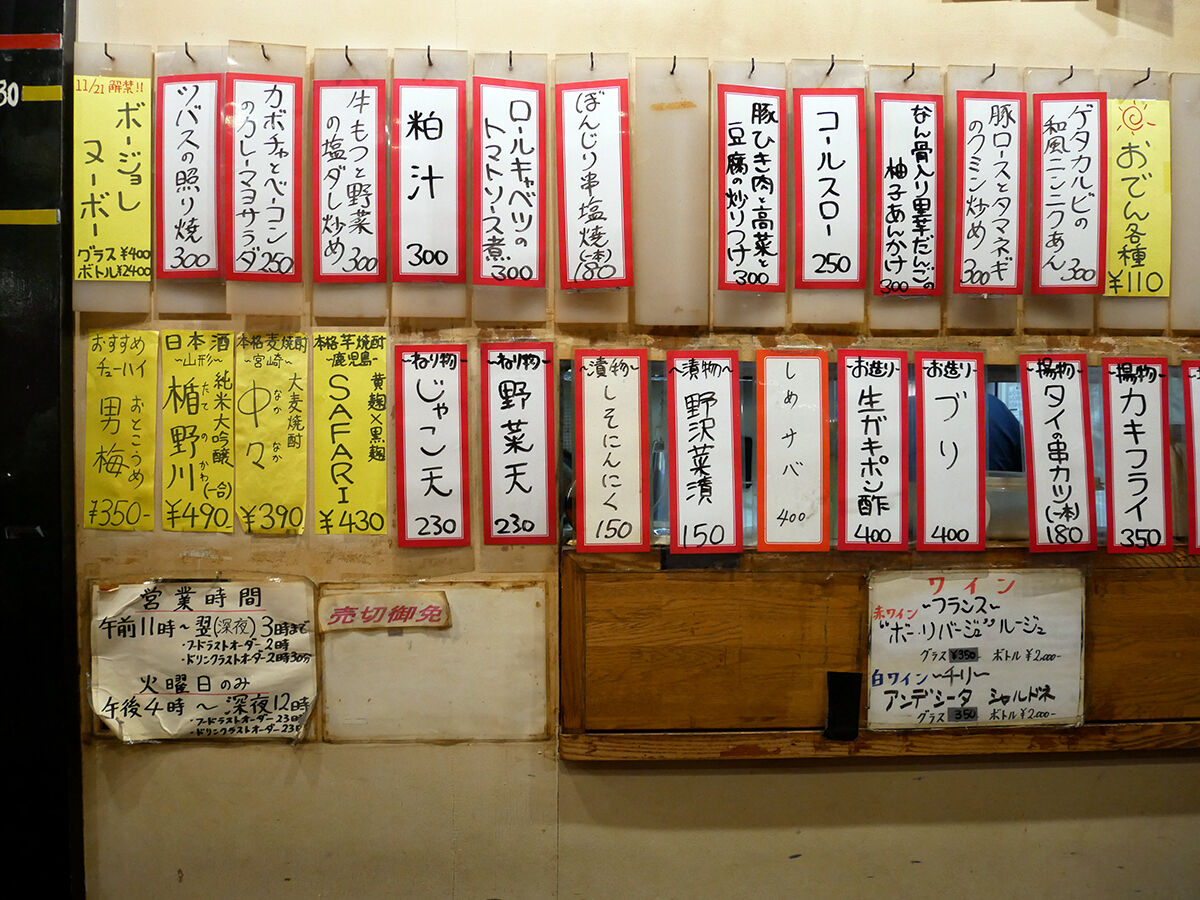 30
11/21 解禁!!
ボージョレ
ヌーボー
グラス ¥400
ボトル ¥2400
ツバスの照り焼
300
カボチャとベーコン
のカレーマヨサラダ
250
牛もつと野菜
の塩ダレ炒め
300
粕汁
300
ロールキャベツの
トマトソース煮
300
ぼんじり串塩焼
(一本)
180
豚ひき肉と高菜と
豆腐の炒りつけ
300
コールスロー
250
なん骨入り里芋だんごの
柚子あんかけ
300
豚ロースとタマネギ
のクミン炒め
300
ゲタカルビの
和風ニンニクあん
300
おでん各種
¥110
おすすめ
チューハイ
男梅
おとこうめ
¥350-
日本酒
~山形~
純米大吟醸
楯野川
たてのかわ
(一合)
¥490
本格麦焼酎
~宮崎~
大麦焼酎
中々
なかなか
¥390
本格芋焼酎
~鹿児島~
黄麹×黒麹
SAFARI
¥430
~ねり物~
じゃこ天
230
~ねり物~
野菜天
230
~漬物~
しそにんにく
150
~漬物~
野沢菜漬
150
しめサバ
400
~お造り~
生ガキポン酢
400
~お造り~
ブリ
400
~揚物~
タイの串カツ
(一本)
180
~揚物~
カキフライ
350
営業時間
午前11時~翌(深夜)3時まで
・フードラストオーダー 2時
・ドリンクラストオーダー 2時30分
火曜日のみ
午後4時~深夜12時
・フードラストオーダー 23時
・ドリンクラストオーダー 23時
売切御免
ワイン
赤ワイン ~フランス~
"ボー・リバージュ"ルージュ
グラス ¥350- ボトル ¥2.000-
白ワイン ~チリ~
アンデシータ シャルドネ
グラス 350 ボトル ¥2.000-